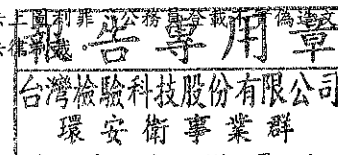 圖利罪 公務員登載不實偽造文
報告專用章
台灣檢驗科技股份有限公司
環安衛事業群